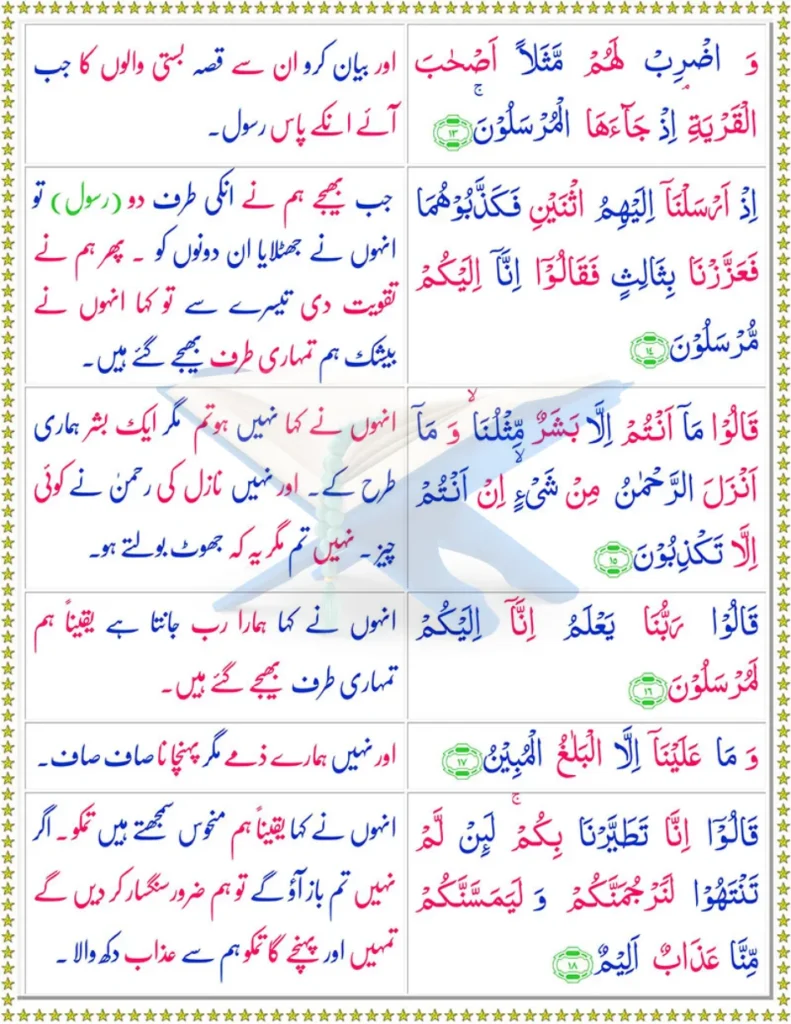 وَ اضْرِبْ لَهُمْ مَّثَلًا اَصْحٰبَ
الْقَرْيَةِ ۘ اِذْ جَآءَهَا الْمُرْسَلُوْنَ ۚ ١٣
اور بیان کرو ان سے قصہ بستی والوں کا جب
آئے انکے پاس رسول۔
اِذْ اَرْسَلْنَاۤ اِلَيْهِمُ اثْنَيْنِ فَكَذَّبُوْهُمَا
فَعَزَّزْنَا بِثَالِثٍ فَقَالُوْۤا اِنَّاۤ اِلَيْكُمْ
مُّرْسَلُوْنَ ١٤
جب بھیجے ہم نے انکی طرف دو (رسول) تو
انہوں نے جھٹلایا ان دونوں کو ۔ پھر ہم نے
تقویت دی تیسرے سے تو کہا انہوں نے
بیشک ہم تمہاری طرف بھیجے گئے ہیں۔
قَالُوْا مَاۤ اَنْتُمْ اِلَّا بَشَرٌ مِّثْلُنَا ۙ وَ مَاۤ
اَنْزَلَ الرَّحْمٰنُ مِنْ شَیْءٍ ۙ اِنْ اَنْتُمْ
اِلَّا تَكْذِبُوْنَ ١٥
انہوں نے کہا نہیں ہو تم مگر ایک بشر ہماری
طرح کے۔ اور نہیں نازل کی رحمن نے کوئی
چیز ۔ نہیں تم مگر یہ کہ جھوٹ بولتے ہو۔
قَالُوْا رَبُّنَا يَعْلَمُ اِنَّاۤ اِلَيْكُمْ
لَمُرْسَلُوْنَ ١٦
انہوں نے کہا ہمارا رب جانتا ہے یقیناً ہم
تمہاری طرف بھیجے گئے ہیں۔
وَ مَا عَلَيْنَاۤ اِلَّا الْبَلٰغُ الْمُبِيْنُ ١٧
اور نہیں ہمارے ذمے مگر پہنچا نا صاف صاف۔
قَالُوْۤا اِنَّا تَطَيَّرْنَا بِكُمْ ۚ لَئِنْ لَّمْ
تَنْتَهُوْا لَنَرْجُمَنَّكُمْ وَ لَيَمَسَّنَّكُمْ
مِّنَّا عَذَابٌ اَلِيْمٌ ١٨
انہوں نے کہا یقیناً ہم منحوس سمجھتے ہیں تمکو۔ اگر
نہیں تم باز آؤ گے تو ہم ضرور سنگسار کر دیں گے
تمہیں اور پہنچے گا تمکو ہم سے عذاب دکھ والا ۔